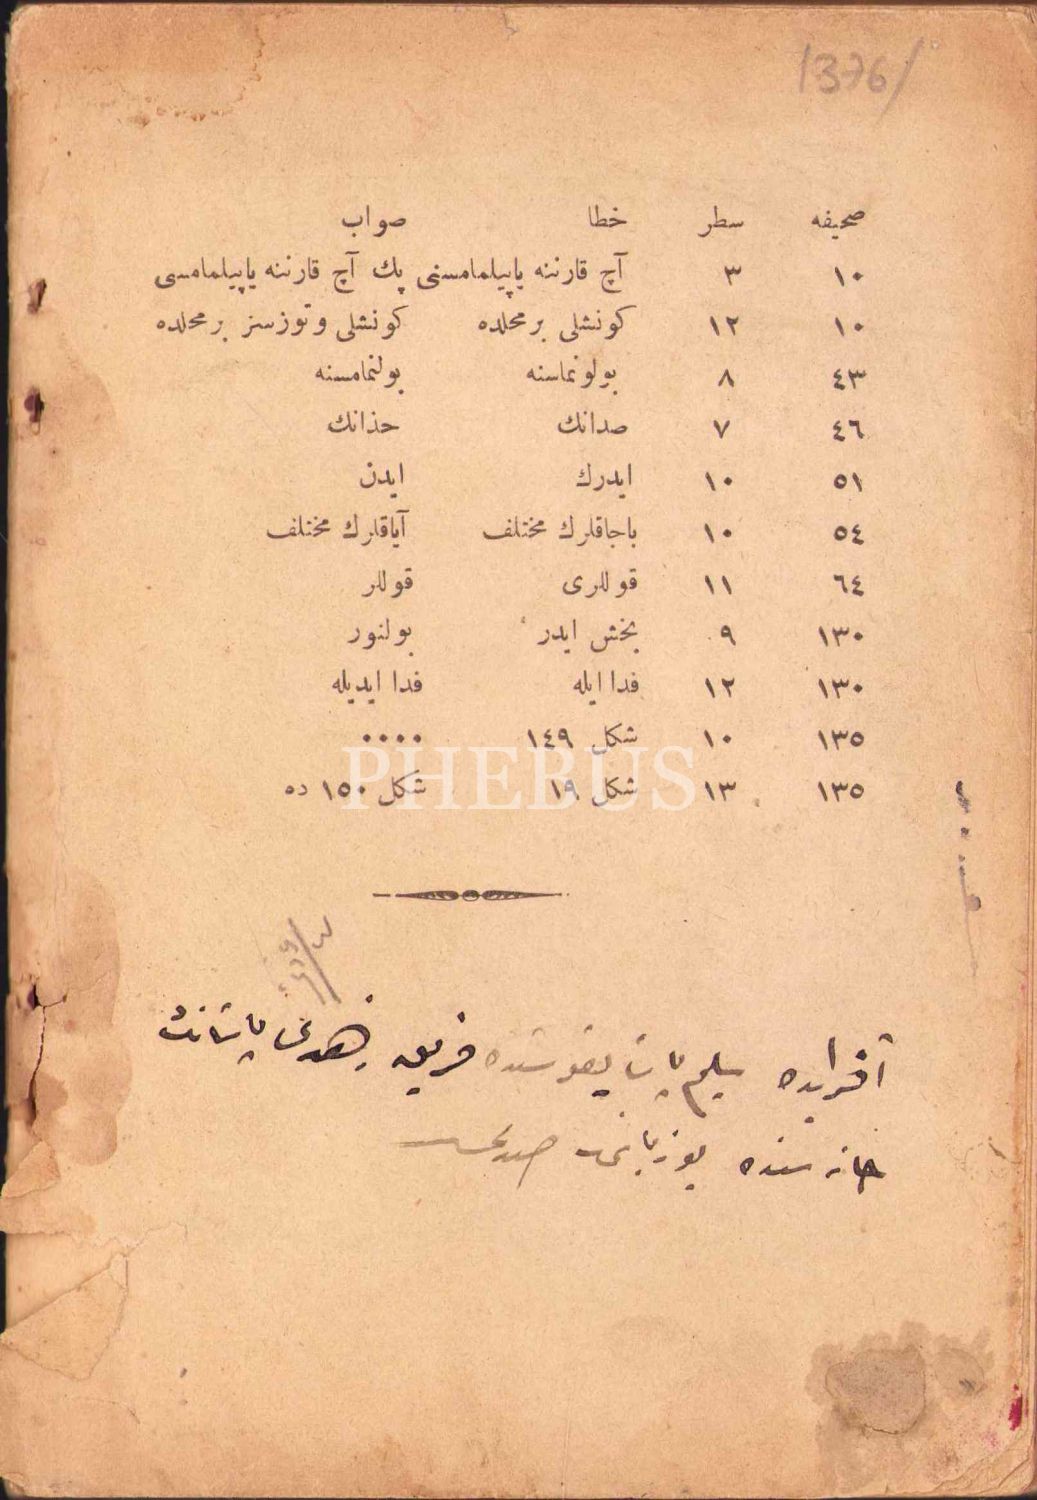 1376/
صحيفه سطر خطا صواب
١٠ ٣ آچ قارننه ياپيلمامسنى پك آچ قارننه ياپيلمامسى
١٠ ١٢ كونشلى بر محلده كونشلى و توزسز بر محلده
٤٣ ٨ بولونماسنه بولنمامسنه
٤٦ ٧ صدانك حذانك
٥١ ١٠ ايدرك ايدن
٥٤ ١٠ باجاقلرك مختلف آياقلرك مختلف
٦٤ ١١ قوللرى قوللر
١٣٠ ٩ بخش ايدر بولنور
١٣٠ ١٢ فدا ايله فدا ايديله
١٣٥ ١٠ شكل ١٤٩ ....
١٣٥ ١٣ شكل ١٩ شكل ١٥٠ ده
PHEBUS
سليم پاشا يقوشنده فريق زهدى پاشانك
خانه سنده يوزباشى